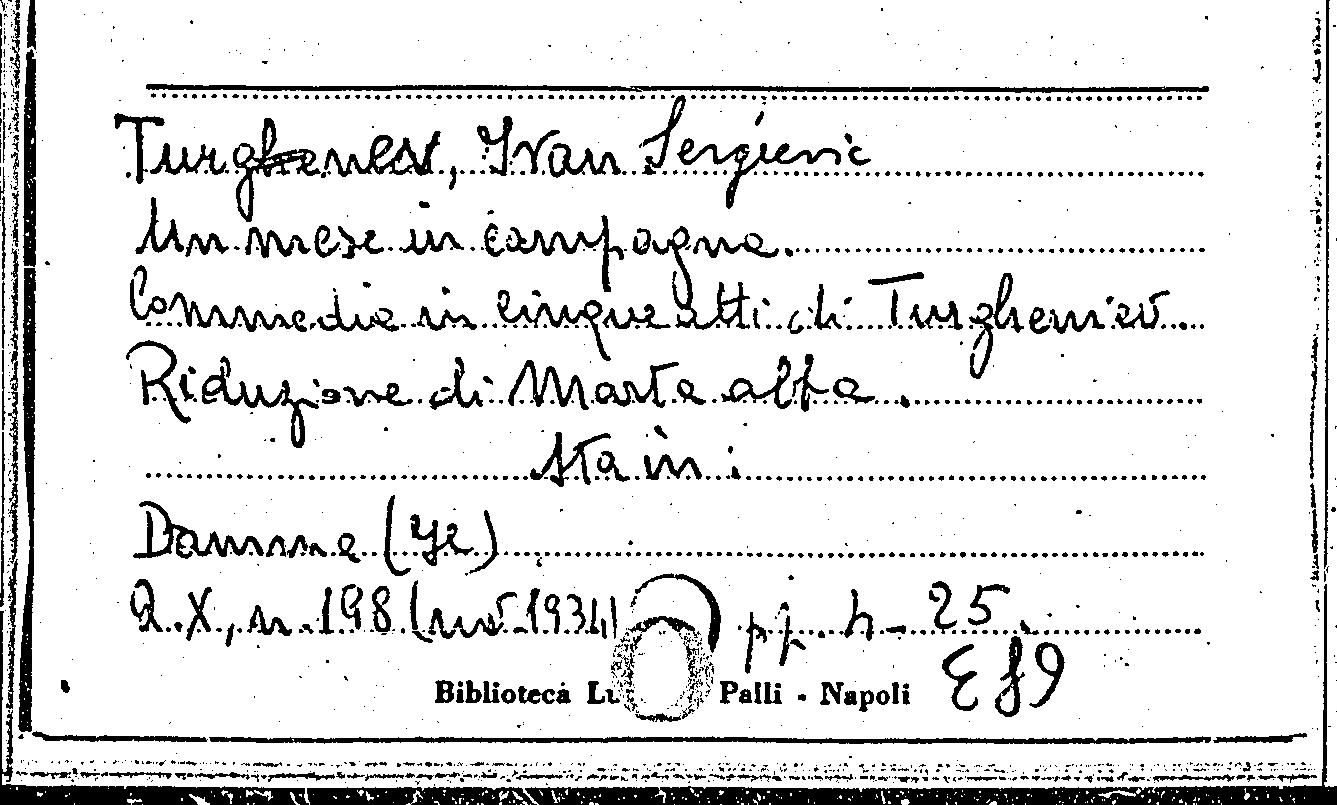 Turghenev, Ivan Sergievic
Un mese in campagna.
Commedia in cinque atti di Turgheniev.
Riduzione di Marta Abba.
Sta in:
Dramma (Il)
A. X, n. 198 (nov. 1934) pp. 4-25.
Biblioteca Lu Palli - Napoli